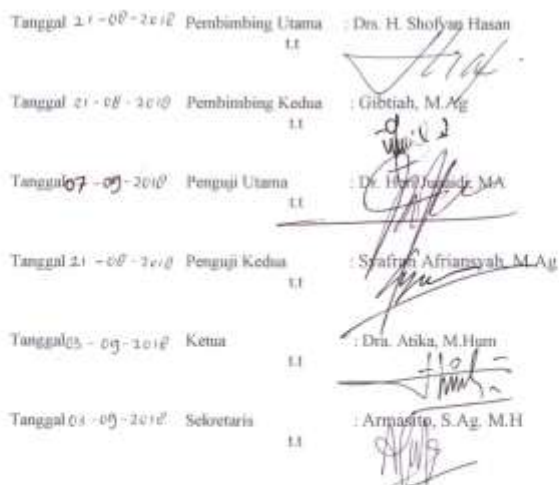 Tanggal 21-08-2018 Pembimbing Utama : Drs. H. Shofyan Hasan
t.t
Tanggal 21-08-2018 Pembimbing Kedua : Gibtiah, M.Ag
t.t
Tanggal 07-09-2018 Penguji Utama : Dr. MA
t.t
Tanggal 21-08-2018 Penguji Kedua : Syafran Afriansyah, M.Ag
t.t
Tanggal 03-09-2018 Ketua : Dra. Atika, M.Hum
t.t
Tanggal 03-09-2018 Sekretaris : Armasito, S.Ag. M.H
t.t